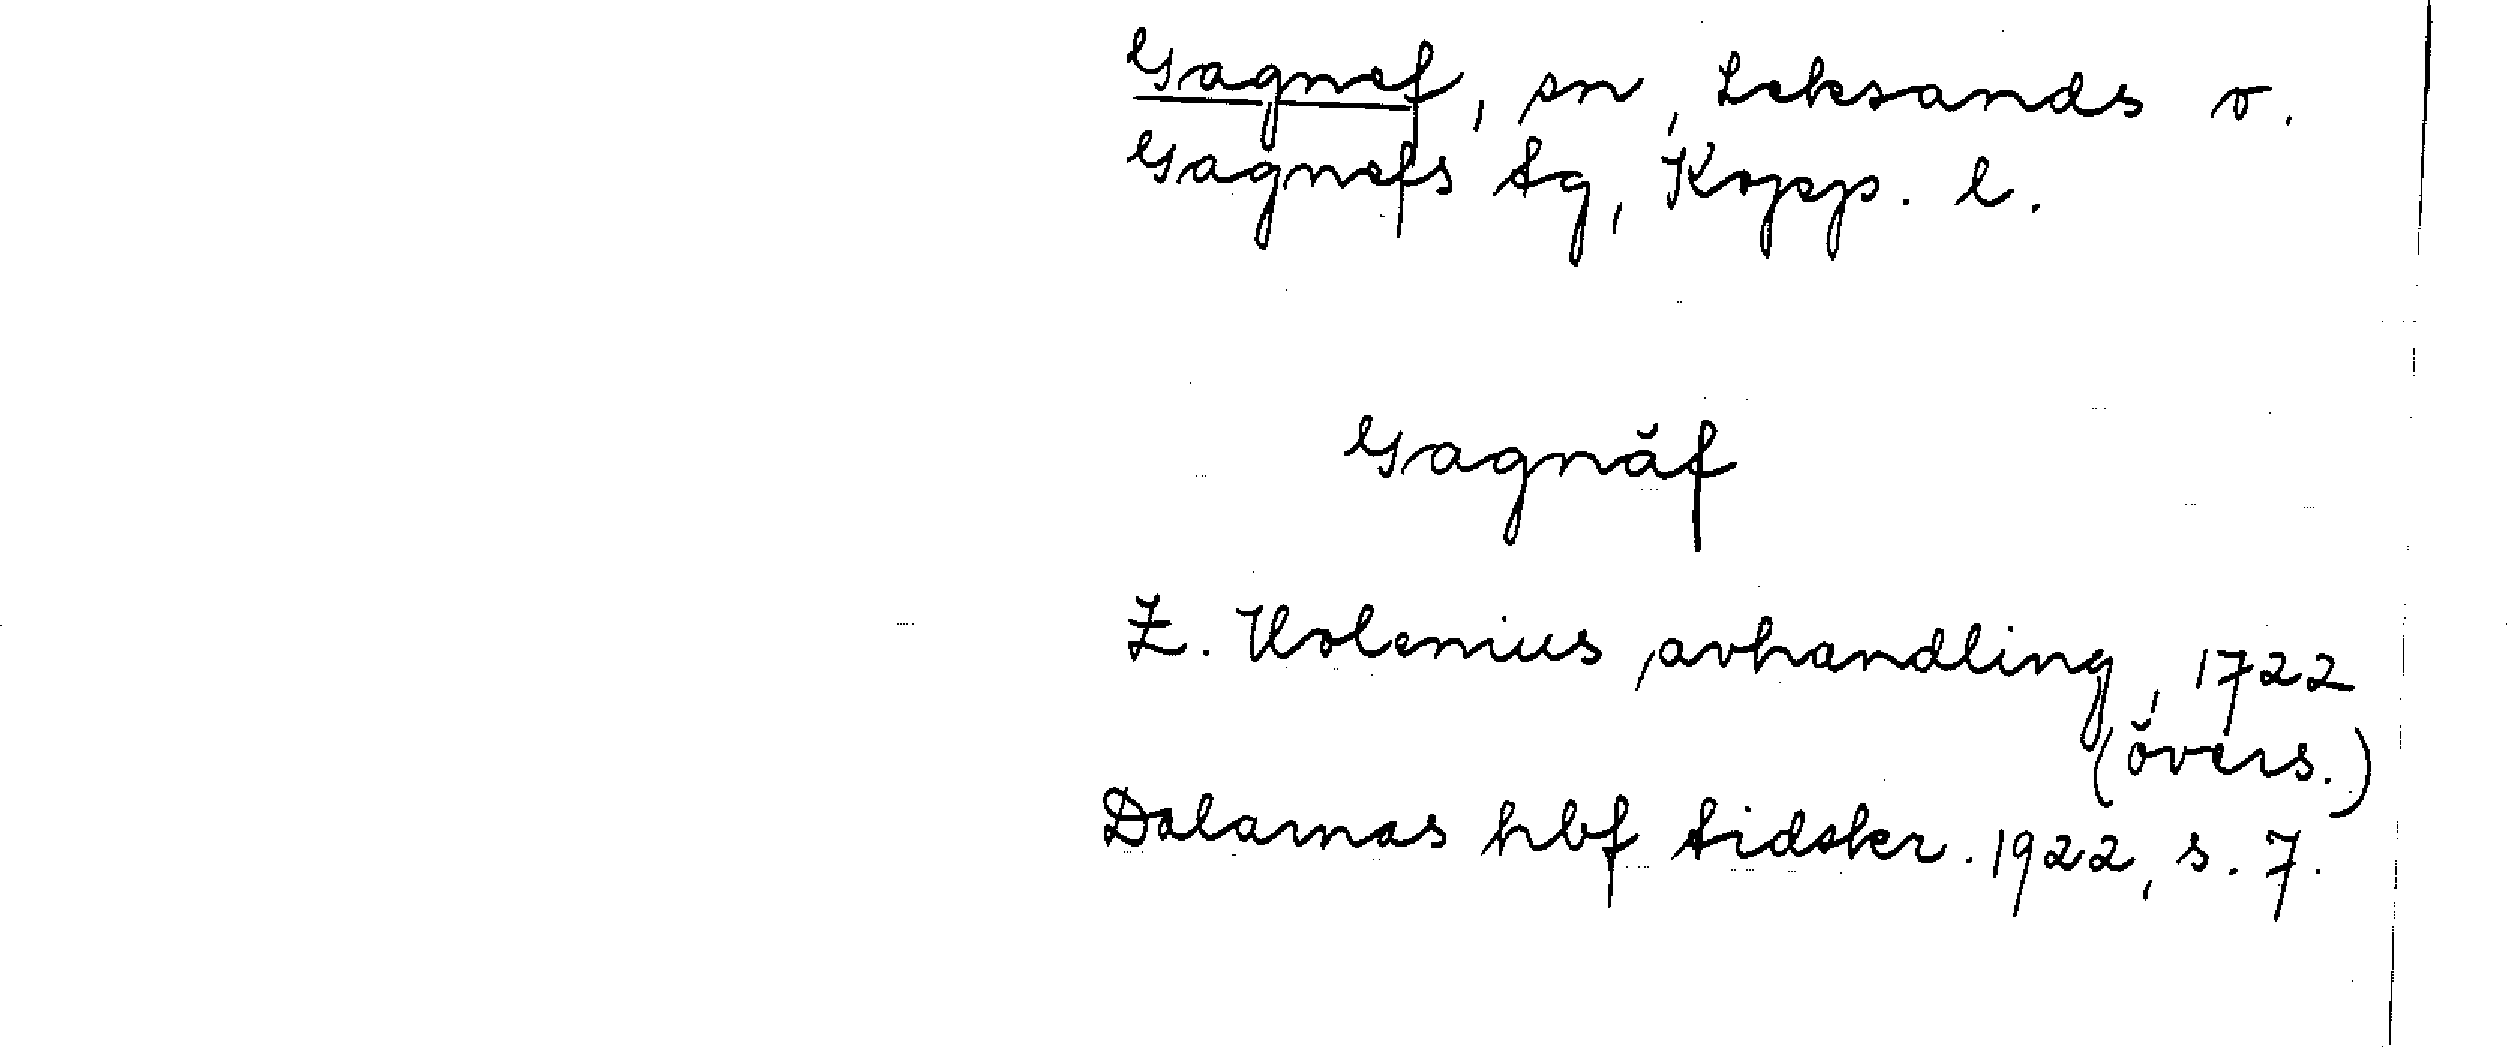 Gagnef, sn, Leksands o.
Gagnefs tg, Kopp. l.
Gagnäf
Z. Holenius, avhandling, 1722
(övers.)
Dalarnas hbf tidskr. 1922, s. 7.